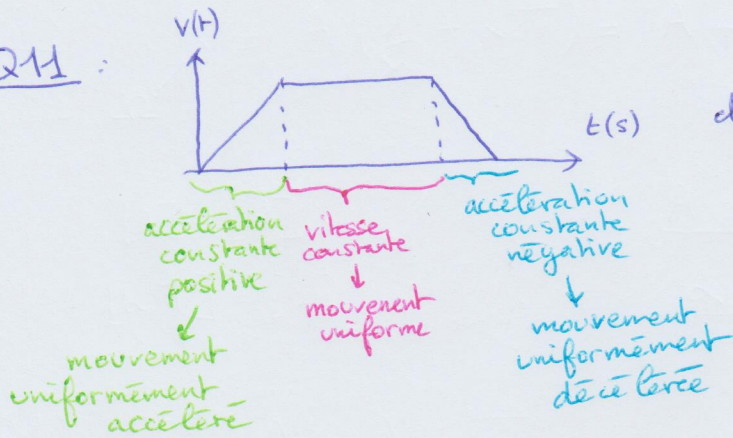 Q11 :
v(t)
t(s)
accélération
constante
positive
↓
mouvement
uniformément
accéléré
vitesse
constante
↓
mouvement
uniforme
accélération
constante
négative
↓
mouvement
uniformément
décélérée